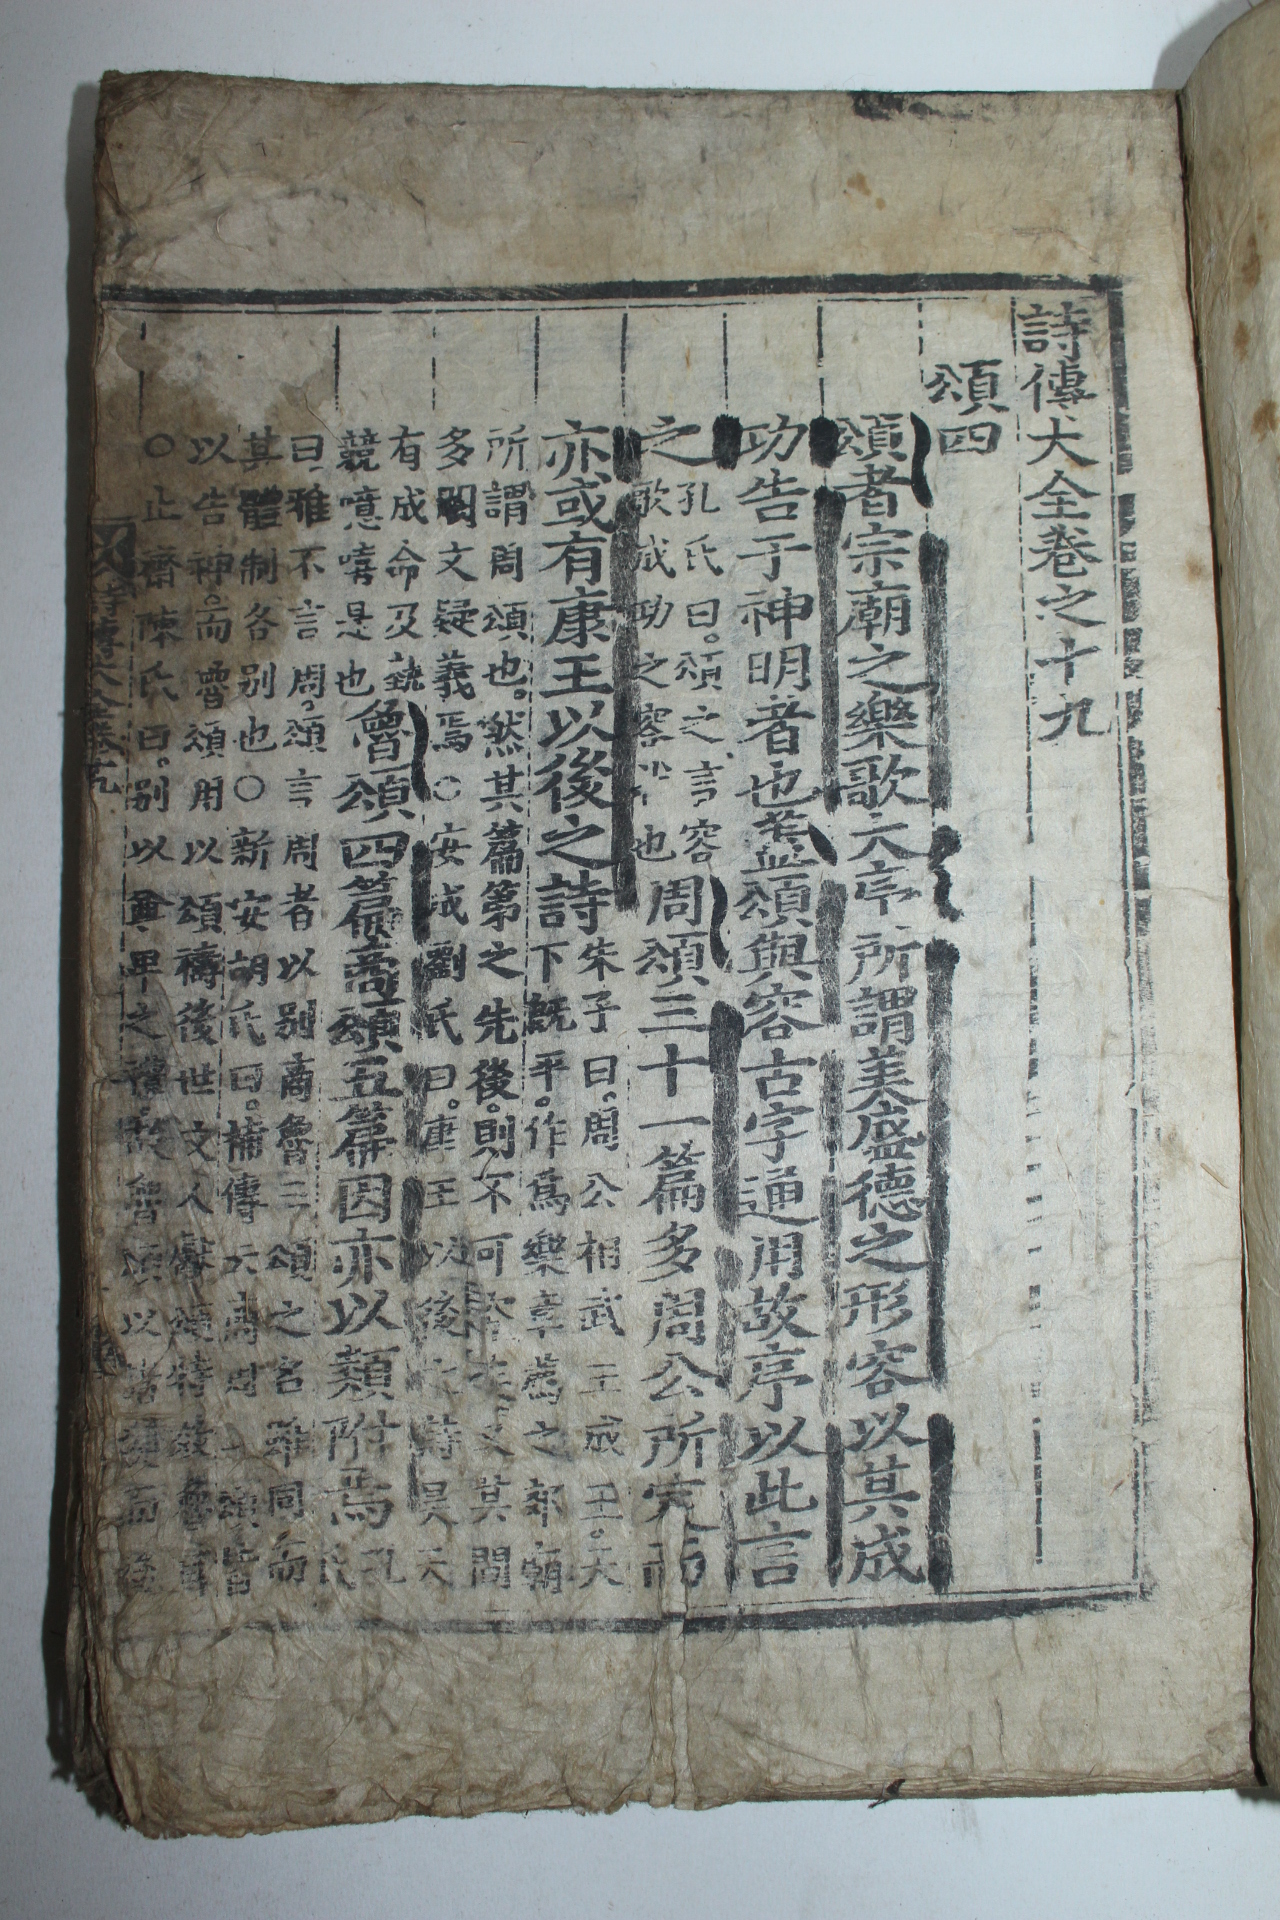 詩傳大全卷之十九
頌四
頌者宗廟之樂歌大序所謂美盛德之形容以其成
功告于神明者也蓋頌與容古字通用故序以此言
之
孔氏曰。頌之言容
歌成功之容狀也
周頌三十一篇多周公所定而
亦或有康王以後之詩
朱子曰。周公相武王成王。天
下旣平。作爲樂章薦之郊廟
所謂周頌也。然其篇第之先後。則不可
多闕文疑義焉○安成劉氏曰。康王以後之詩昊天
有成命及執
競噫嘻是也
魯頌四篇商頌五篇因亦以類附焉
孔
氏
曰。雅不言周。頌言周者以別商魯三頌之名雖同而
其體制各別也○新安胡氏曰。補傳云商周之頌皆
以告神。而魯頌用以頌禱後世文人獻頌特效魯耳
○止齋陳氏曰。別以尊卑之禮。故魯頌以諸侯而後
詩傳大全卷十九